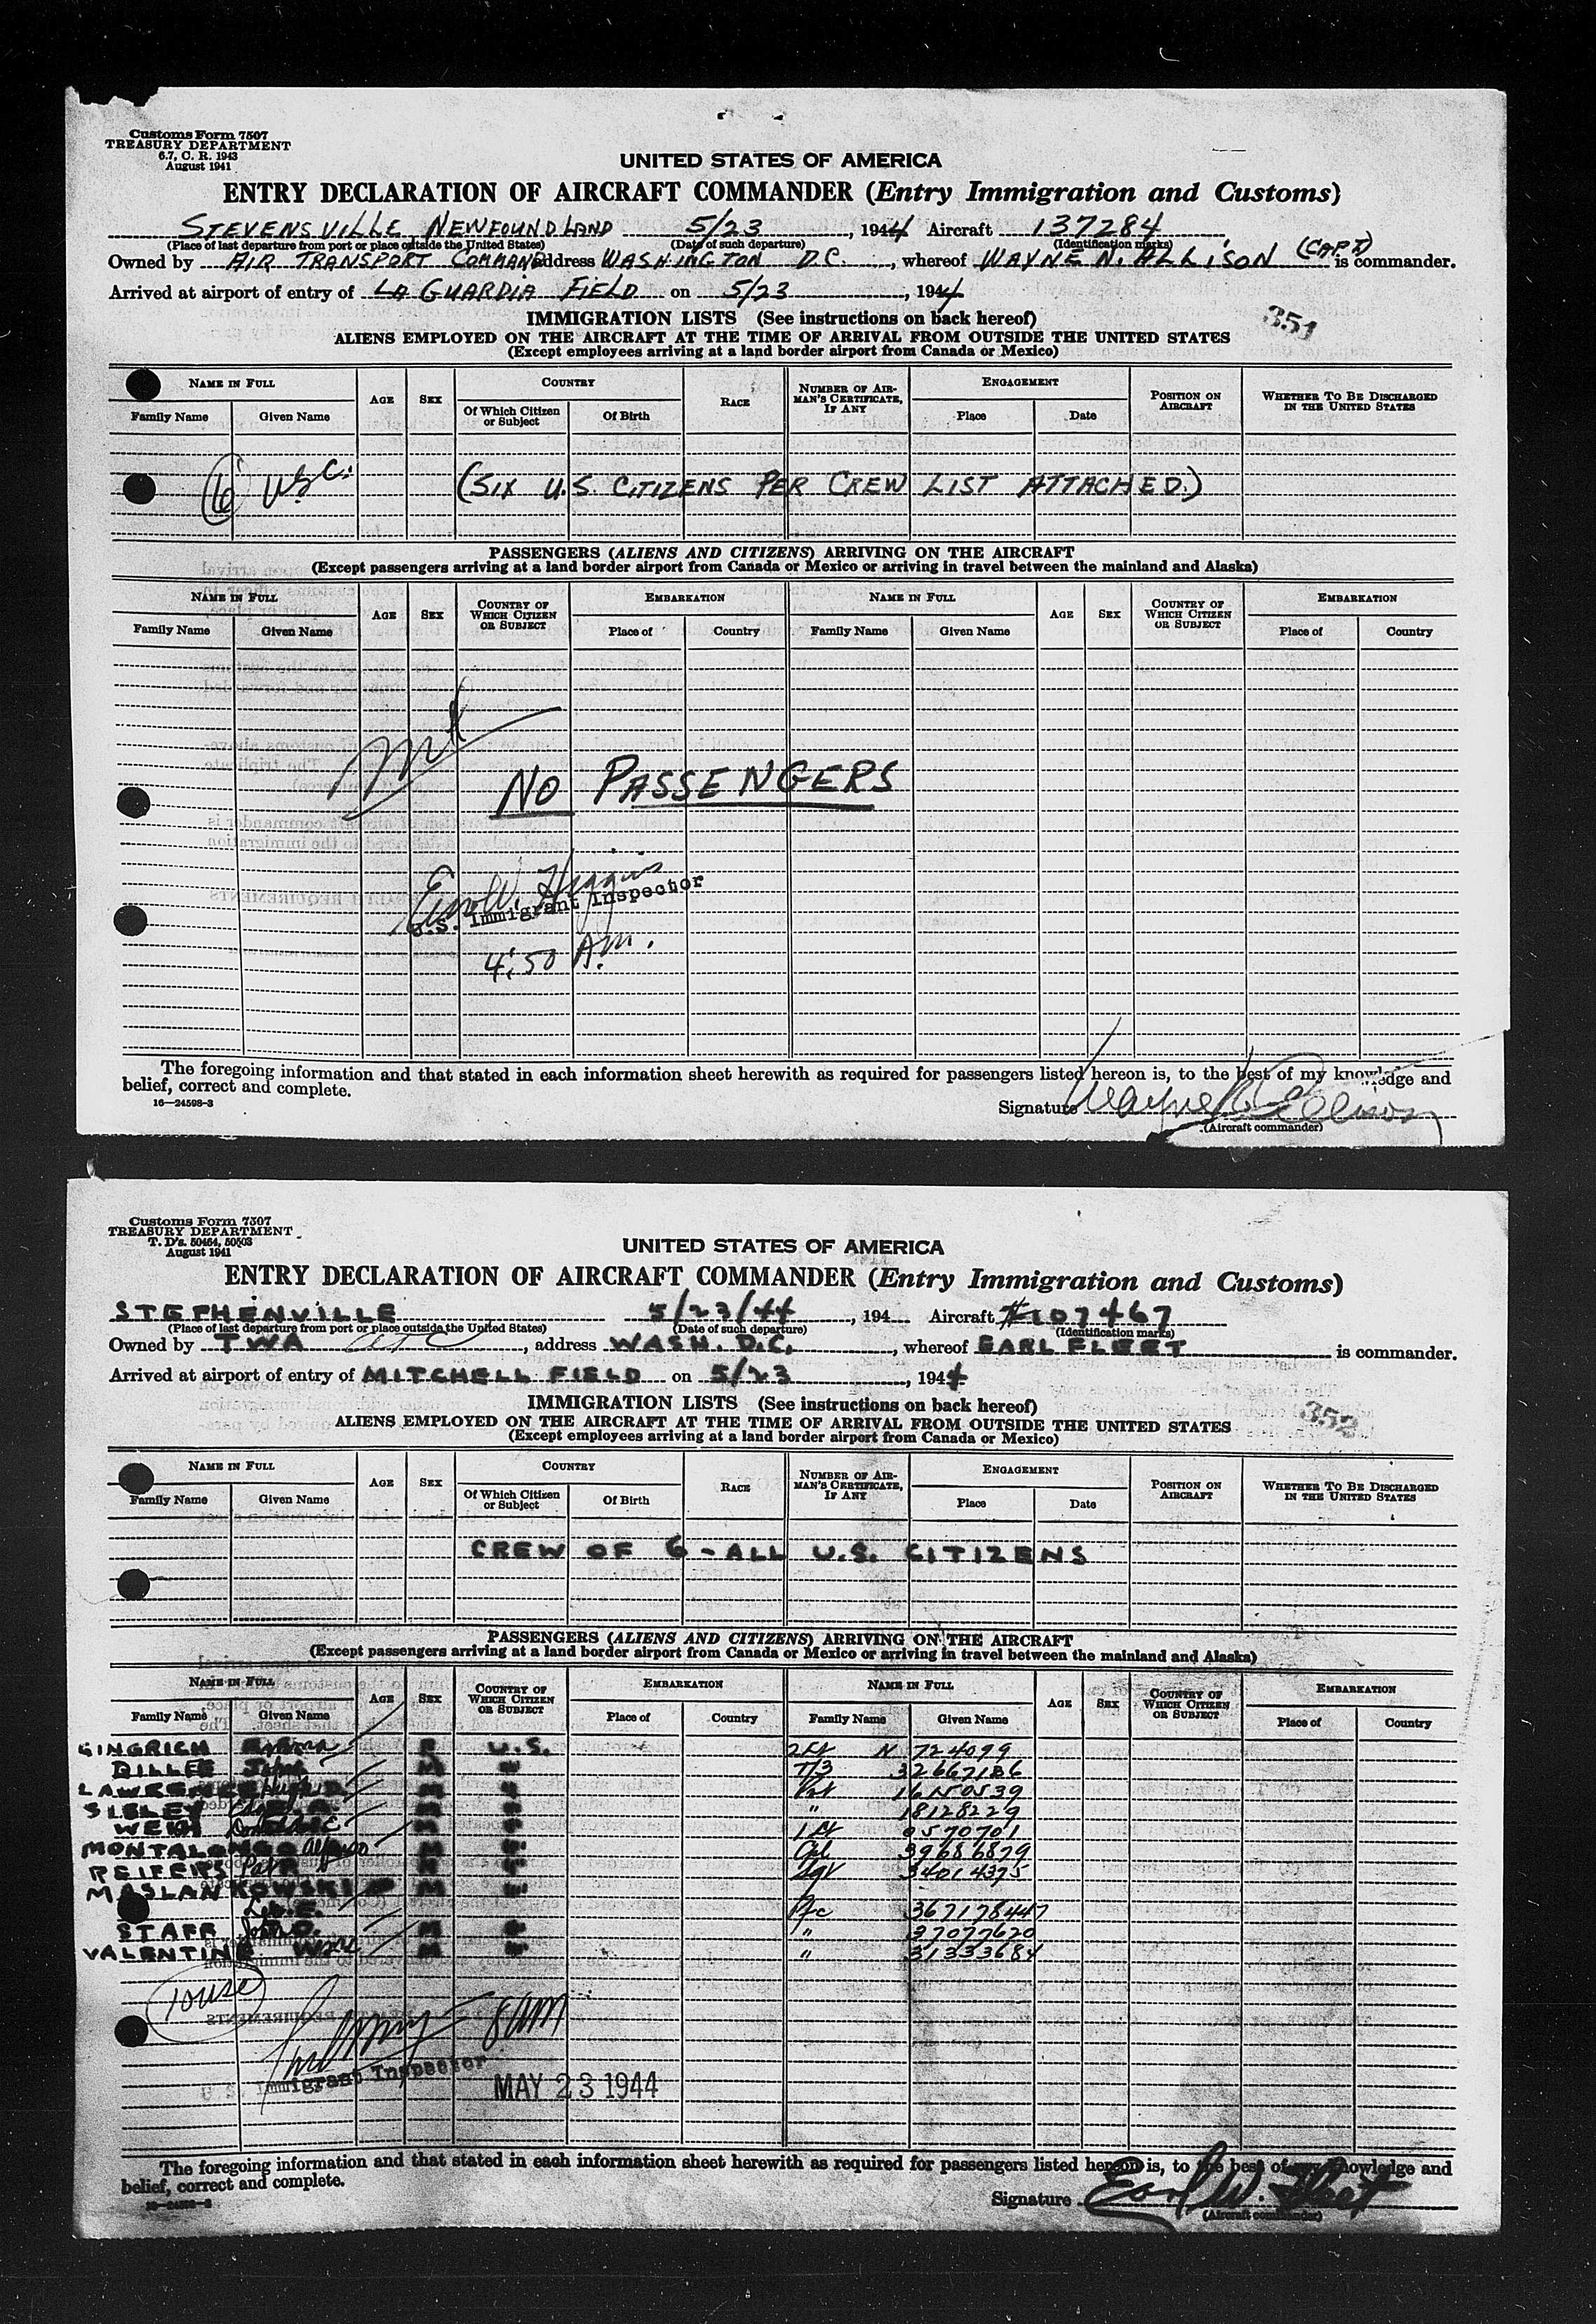 Customs Form 7507
TREASURY DEPARTMENT
6.7, C. R. 1943
August 1941
UNITED STATES OF AMERICA
ENTRY DECLARATION OF AIRCRAFT COMMANDER (Entry Immigration and Customs)
STEVENSVILLE NEWFOUNDLAND 5/23, 1944 Aircraft 137284
(Place of last departure from port or place outside the United States) (Date of such departure) (Identification marks)
Owned by AIR TRANSPORT COMMAND address WASHINGTON D.C., whereof WAYNE N. ALLISON (CAPT) is commander.
Arrived at airport of entry of LA GUARDIA FIELD on 5/23, 1944
351
IMMIGRATION LISTS (See instructions on back hereof)
ALIENS EMPLOYED ON THE AIRCRAFT AT THE TIME OF ARRIVAL FROM OUTSIDE THE UNITED STATES
(Except employees arriving at a land border airport from Canada or Mexico)
NAME IN FULL AGE SEX COUNTRY RACE NUMBER OF AIRMAN'S CERTIFICATE, IF ANY ENGAGEMENT POSITION ON AIRCRAFT WHETHER TO BE DISCHARGED IN THE UNITED STATES
Family Name Given Name Of Which Citizen or Subject Of Birth Place Date
6 U.S.C. (SIX U.S. CITIZENS PER CREW LIST ATTACHED.)
PASSENGERS (ALIENS AND CITIZENS) ARRIVING ON THE AIRCRAFT
(Except passengers arriving at a land border airport from Canada or Mexico or arriving in travel between the mainland and Alaska)
NAME IN FULL AGE SEX COUNTRY OF WHICH CITIZEN OR SUBJECT EMBARKATION NAME IN FULL AGE SEX COUNTRY OF WHICH CITIZEN OR SUBJECT EMBARKATION
Family Name Given Name Place of Country Family Name Given Name Place of Country
NO PASSENGERS
Higgins
U.S. Immigrant Inspector
4:50 A.M.
The foregoing information and that stated in each information sheet herewith as required for passengers listed hereon is, to the best of my knowledge and
belief, correct and complete.
16—24598-3
Signature Wayne N. Allison
(Aircraft commander)
Customs Form 7507
TREASURY DEPARTMENT
T. D's. 50464, 50503
August 1941
UNITED STATES OF AMERICA
ENTRY DECLARATION OF AIRCRAFT COMMANDER (Entry Immigration and Customs)
STEPHENVILLE 5/23/44, 194 Aircraft #107467
(Place of last departure from port or place outside the United States) (Date of such departure) (Identification marks)
Owned by TWA ATC, address WASH. D.C., whereof EARL FLEET is commander.
Arrived at airport of entry of MITCHELL FIELD on 5/23, 1944
352
IMMIGRATION LISTS (See instructions on back hereof)
ALIENS EMPLOYED ON THE AIRCRAFT AT THE TIME OF ARRIVAL FROM OUTSIDE THE UNITED STATES
(Except employees arriving at a land border airport from Canada or Mexico)
NAME IN FULL AGE SEX COUNTRY RACE NUMBER OF AIRMAN'S CERTIFICATE, IF ANY ENGAGEMENT POSITION ON AIRCRAFT WHETHER TO BE DISCHARGED IN THE UNITED STATES
Family Name Given Name Of Which Citizen or Subject Of Birth Place Date
CREW OF 6 - ALL U.S. CITIZENS
PASSENGERS (ALIENS AND CITIZENS) ARRIVING ON THE AIRCRAFT
(Except passengers arriving at a land border airport from Canada or Mexico or arriving in travel between the mainland and Alaska)
NAME IN FULL AGE SEX COUNTRY OF WHICH CITIZEN OR SUBJECT EMBARKATION NAME IN FULL AGE SEX COUNTRY OF WHICH CITIZEN OR SUBJECT EMBARKATION
Family Name Given Name Place of Country Family Name Given Name Place of Country
GINGRICH U.S. 2 Lt N 724099
DILLEE John M " T/3 32667186
LAWRENCE M " Pvt 16150539
SIBLEY M " " 18128229
WEIR M " 1 Lt 0570701
MONTALONGO Alfonso M " Cpl 39686879
REIFERS " Sgt 34014375
MASLANKOWSKI M "
Pfc 367178447
STAFF John O. M " " 37077620
VALENTINE M " " 31333684
10 USC
8 AM
U.S. Immigrant Inspector
MAY 23 1944
The foregoing information and that stated in each information sheet herewith as required for passengers listed hereon is, to the best of my knowledge and
belief, correct and complete.
Signature Earl W. Fleet
(Aircraft commander)